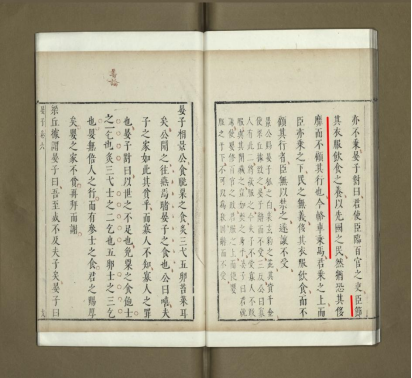 亦不乘晏子對曰君使臣臨百官之吏臣節
其衣服飲食之養以先國之民然猶恐其侈
靡而不顧其行也今輅車乘馬君乘之上而
臣亦乘之下民之無義侈其衣服飲食而不
顧其行者臣無以禁之遂讓不受
晏子相景公食脫粟之食炙三弋五卵苔菜耳
矣公聞之往燕焉睹晏子之食也公曰嘻夫
子之家如此其貧乎而寡人不知寡人之罪
也晏子對曰以世之不足也免粟之食飽士
之一乞也炙三弋士之二乞也五卵士之三乞
也嬰無倍人之行而有參士之食君之賜厚
矣嬰之家不貧再拜而謝
梁丘據謂晏子曰吾至死不及夫子矣晏子曰